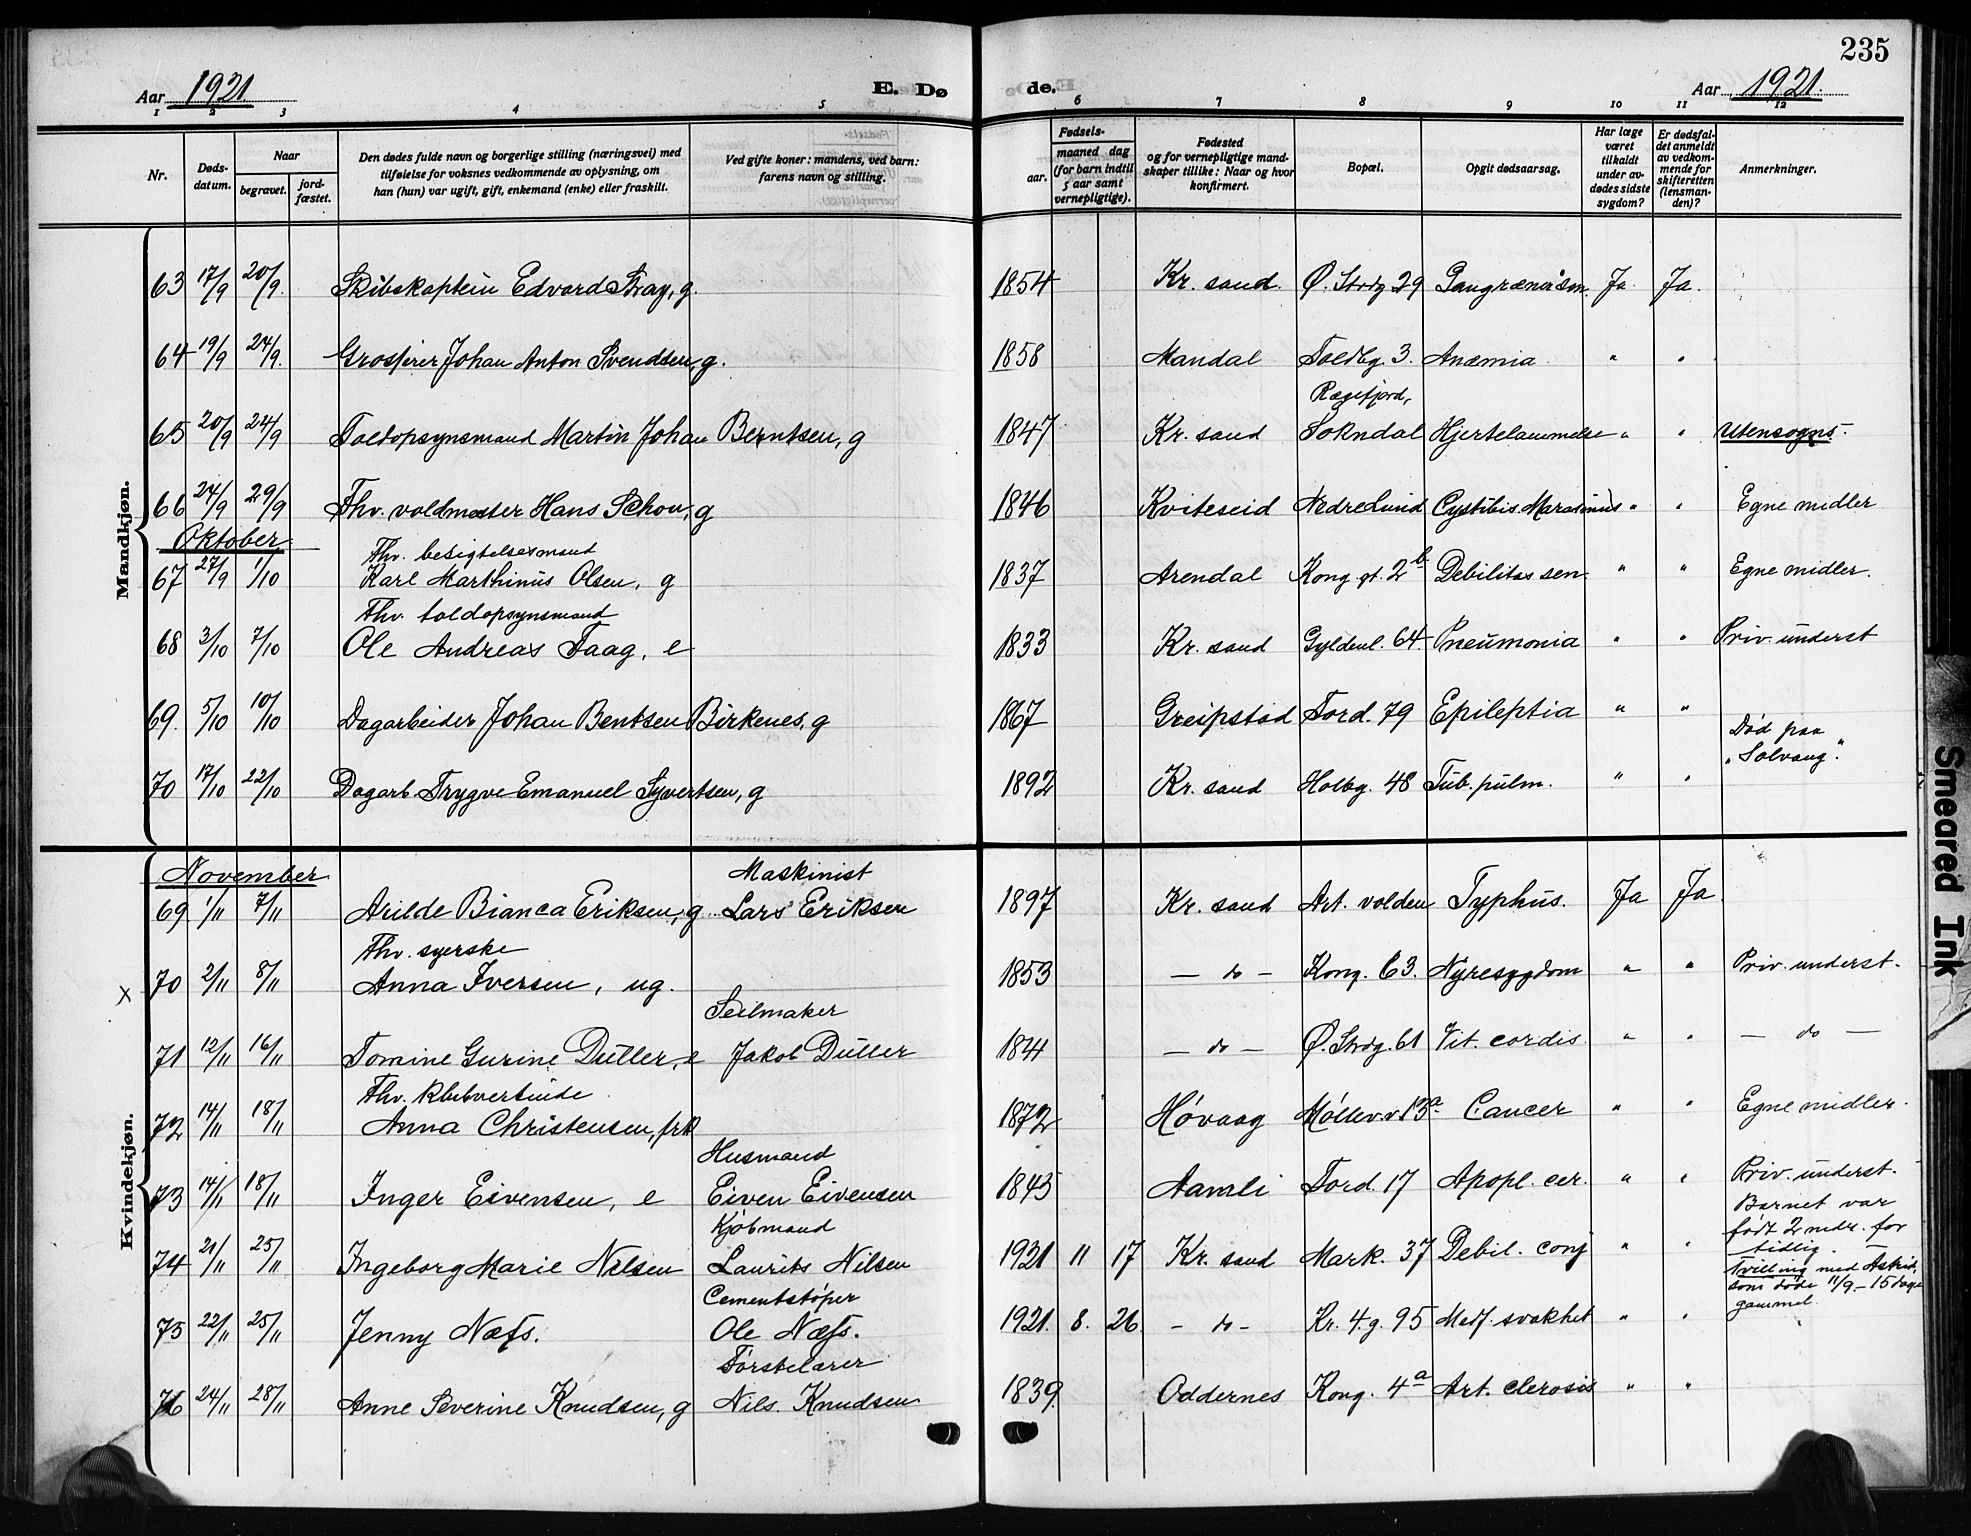 235
Aar 1921 E. Dø de. Aar 1921.
1 2 3 4 5 6 7 8 9 10 11 12
Nr. Døds-datum. Naar begravet. jord-fæstet. Den dødes fulde navn og borgerlige stilling (næringsvei) med tilføielse for voksnes vedkommende av oplysning, om han (hun) var ugift, gift, enkemand (enke) eller fraskilt. Ved gifte koner: mandens, ved barn: farens navn og stilling. Fødsels- aar. maaned dag (for barn indtil 5 aar samt vernepligtige). Fødested og for vernepligtige mand-skaper tillike: Naar og hvor konfirmert. Bopæl. Opgit dødsaarsag. Har læge været tilkaldt under av-dødes sidste sygdom? Er dødsfal-det anmeldt av vedkom-mende for skifteretten (lensman-den)? Anmerkninger.
Mandkjøn.
63 17/9 20/9. Skibskaptein Edvard Stray, g. 1854 Kr. sand. Ø. Strdg 29 Gangræna sen. Ja Ja.
64 19/9 24/9. Grosserer Johan Anton Svendsen, g. 1858 Mandal Toldbg. 3. Anæmia " "
Rægefjord,
65 20/9 24/9 Toldopsynsmand Martin Johan Berntsen, g 1847 Kr. sand Sokndal Hjertelammelse " " Utensogns.
66 24/9 29/9 Fhv. voldmester Hans Schou, g 1846 Kviteseid Nedrelund Cystitis. Marasmus " " Egne midler
Oktober
Fhv. besigtelsesmand
67 27/9 1/10 Karl Marthinus Olsen, g 1837 Arendal Kong. gt. 2b Debilitas sen. " " Egne midler.
Fhv. toldopsynsmand
68 3/10 7/10 Ole Andreas Faag, e 1833 Kr. sand Gyldenl. 64. Pneumonia " " Priv. underst
69. 5/10 10/10 Dagarbeider Johan Bentsen Birkenes, g 1867 Greipstad Tord. 79 Epileptia " "
Død paa
"Solvang".
70 17/10 22/10 Dagarb. Trygve Emanuel Syvertsen, g 1892 Kr. sand Holbg. 48 Tub. pulm. " "
Kvindekjøn.
November
Maskinist
69 1/11 7/11 Arilde Bianca Eriksen, g. Lars Eriksen 1897 Kr. sand Art. volden Typhus. Ja Ja.
Fhv. syerske
x 70 2/11 8/11 Anna Iversen, ug. 1853 — do — Kong. 63. Nyresygdom " " Priv. underst.
Seilmaker
71 12/11 16/11 Tomine Gurine Duller, e Jakob Duller 1844 — do — Ø. Strdg. 61 Vit. cordis. " " — do —
Fhv. klubvertinde
72 14/11 18/11 Anna Christensen, frk 1872 Høvaag Møllev. v. 13a Cancer " " Egne midler.
Husmand
73 14/11 18/11 Inger Eivensen, e Eiven Eivensen 1843 Aamli Tord. 17 Apopl. cer. " " Priv. underst.
Kjøbmand
74 21/11 25/11 Ingeborg Marie Nilsen Laurits Nilsen 1921 11 17 Kr. sand Mark. 37 Debil. conj " "
Barnet var
født 2 mdr. for
tidlig.
Cementstøper
75 22/11 25/11 Jenny Næss. Ole Næss. 1921. 8. 26. — do — Kr. 4. g. 95 Medf. svakhet " "
Tvilling med Astrid,
som døde 11/9 – 15 dage
gammel.
Førstelærer
76 24/11 28/11 Anne Severine Knudsen, g Nils Knudsen 1839. Oddernes Kong. 4a Art. clerosis " "
Smeared Ink